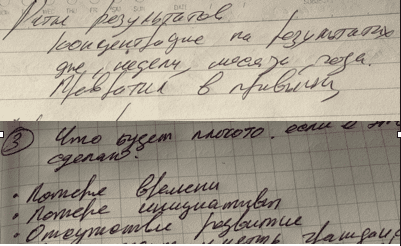 Ритм результатов
концентрацие на результатах
дне, недели, месяца, года.
Превратил в привычку
③ Что будет плохого, если я это
сделаю?
• Потере времени
• Потере инициативы
• Отсутствие развитие